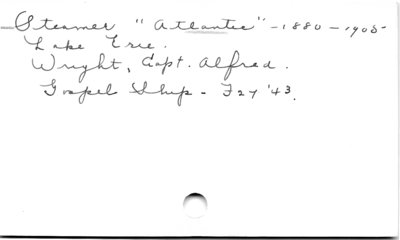 Steamer "Atlantic" - 1880 - 1905
Lake Erie.
Wright, Capt. Alfred.
Gospel Ship - F27 '43.